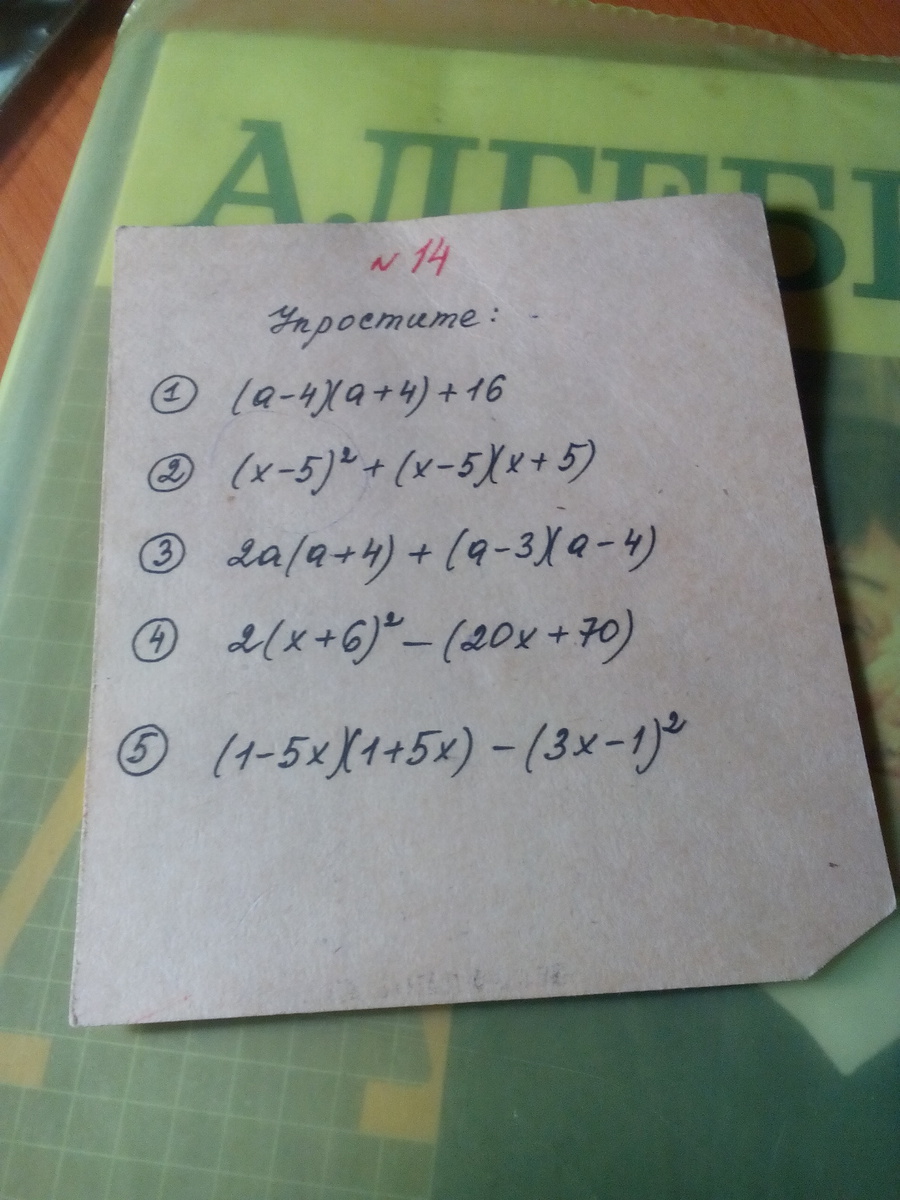 АЛГЕБ
№ 14
Упростите:
① (a-4)(a+4)+16
② (x-5)² + (x-5)(x+5)
③ 2a(a+4) + (a-3)(a-4)
④ 2(x+6)² - (20x+70)
⑤ (1-5x)(1+5x) - (3x-1)²